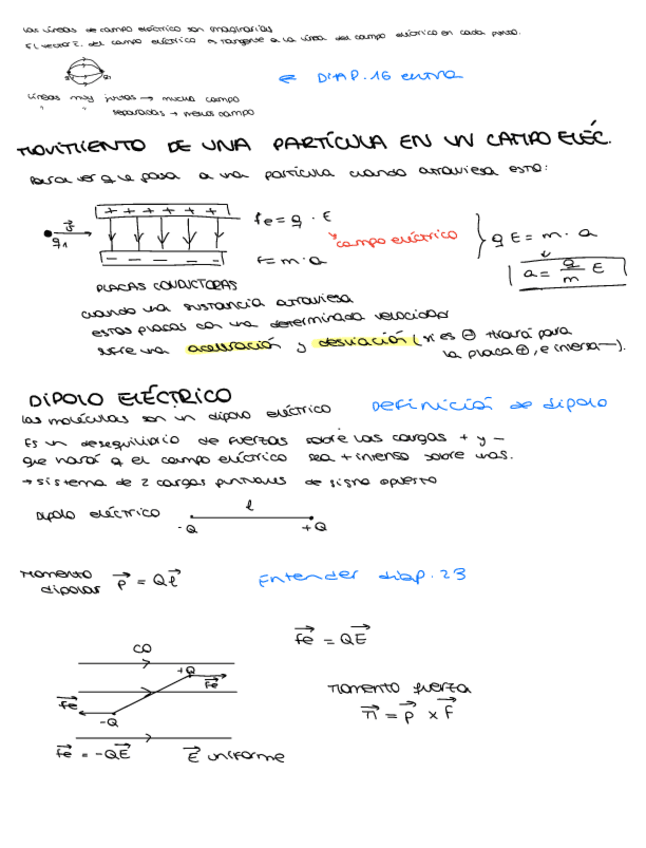 Las líneas de campo eléctrico son imaginarias
El vector E. del campo eléctrico es tangente a la línea del campo eléctrico en cada punto.
← DIAP. 16 entra
Líneas muy juntas → mucho campo
" " separadas → menos campo
MOVIMIENTO DE UNA PARTÍCULA EN UN CAMPO ELÉC.
Para ver que pasa a una partícula cuando atraviesa esto:
+ + + + + +
fe = q · E
q1
campo eléctrico
q E = m · a
F = m · a
a = q/m E
PLACAS CONDUCTORAS
cuando una sustancia atraviesa
estas placas con una determinada velocidad
sufre una aceleración y desviación (si es ⊖ tirará para
la placa ⊕, e inversa—).
DIPOLO ELÉCTRICO
Definición de dipolo
las moléculas son un dipolo eléctrico
Es un desequilibrio de fuerzas sobre las cargas + y -
que hará q el campo eléctrico sea + intenso sobre unas.
→ sistema de 2 cargas puntuales de signo opuesto
Dipolo eléctrico
l
-Q +Q
Momento dipolar p = Ql
Entender diap. 23
fe = QE
+Q
fe
fe
-Q
Momento fuerza
M = p x F
fe = -QE
E uniforme